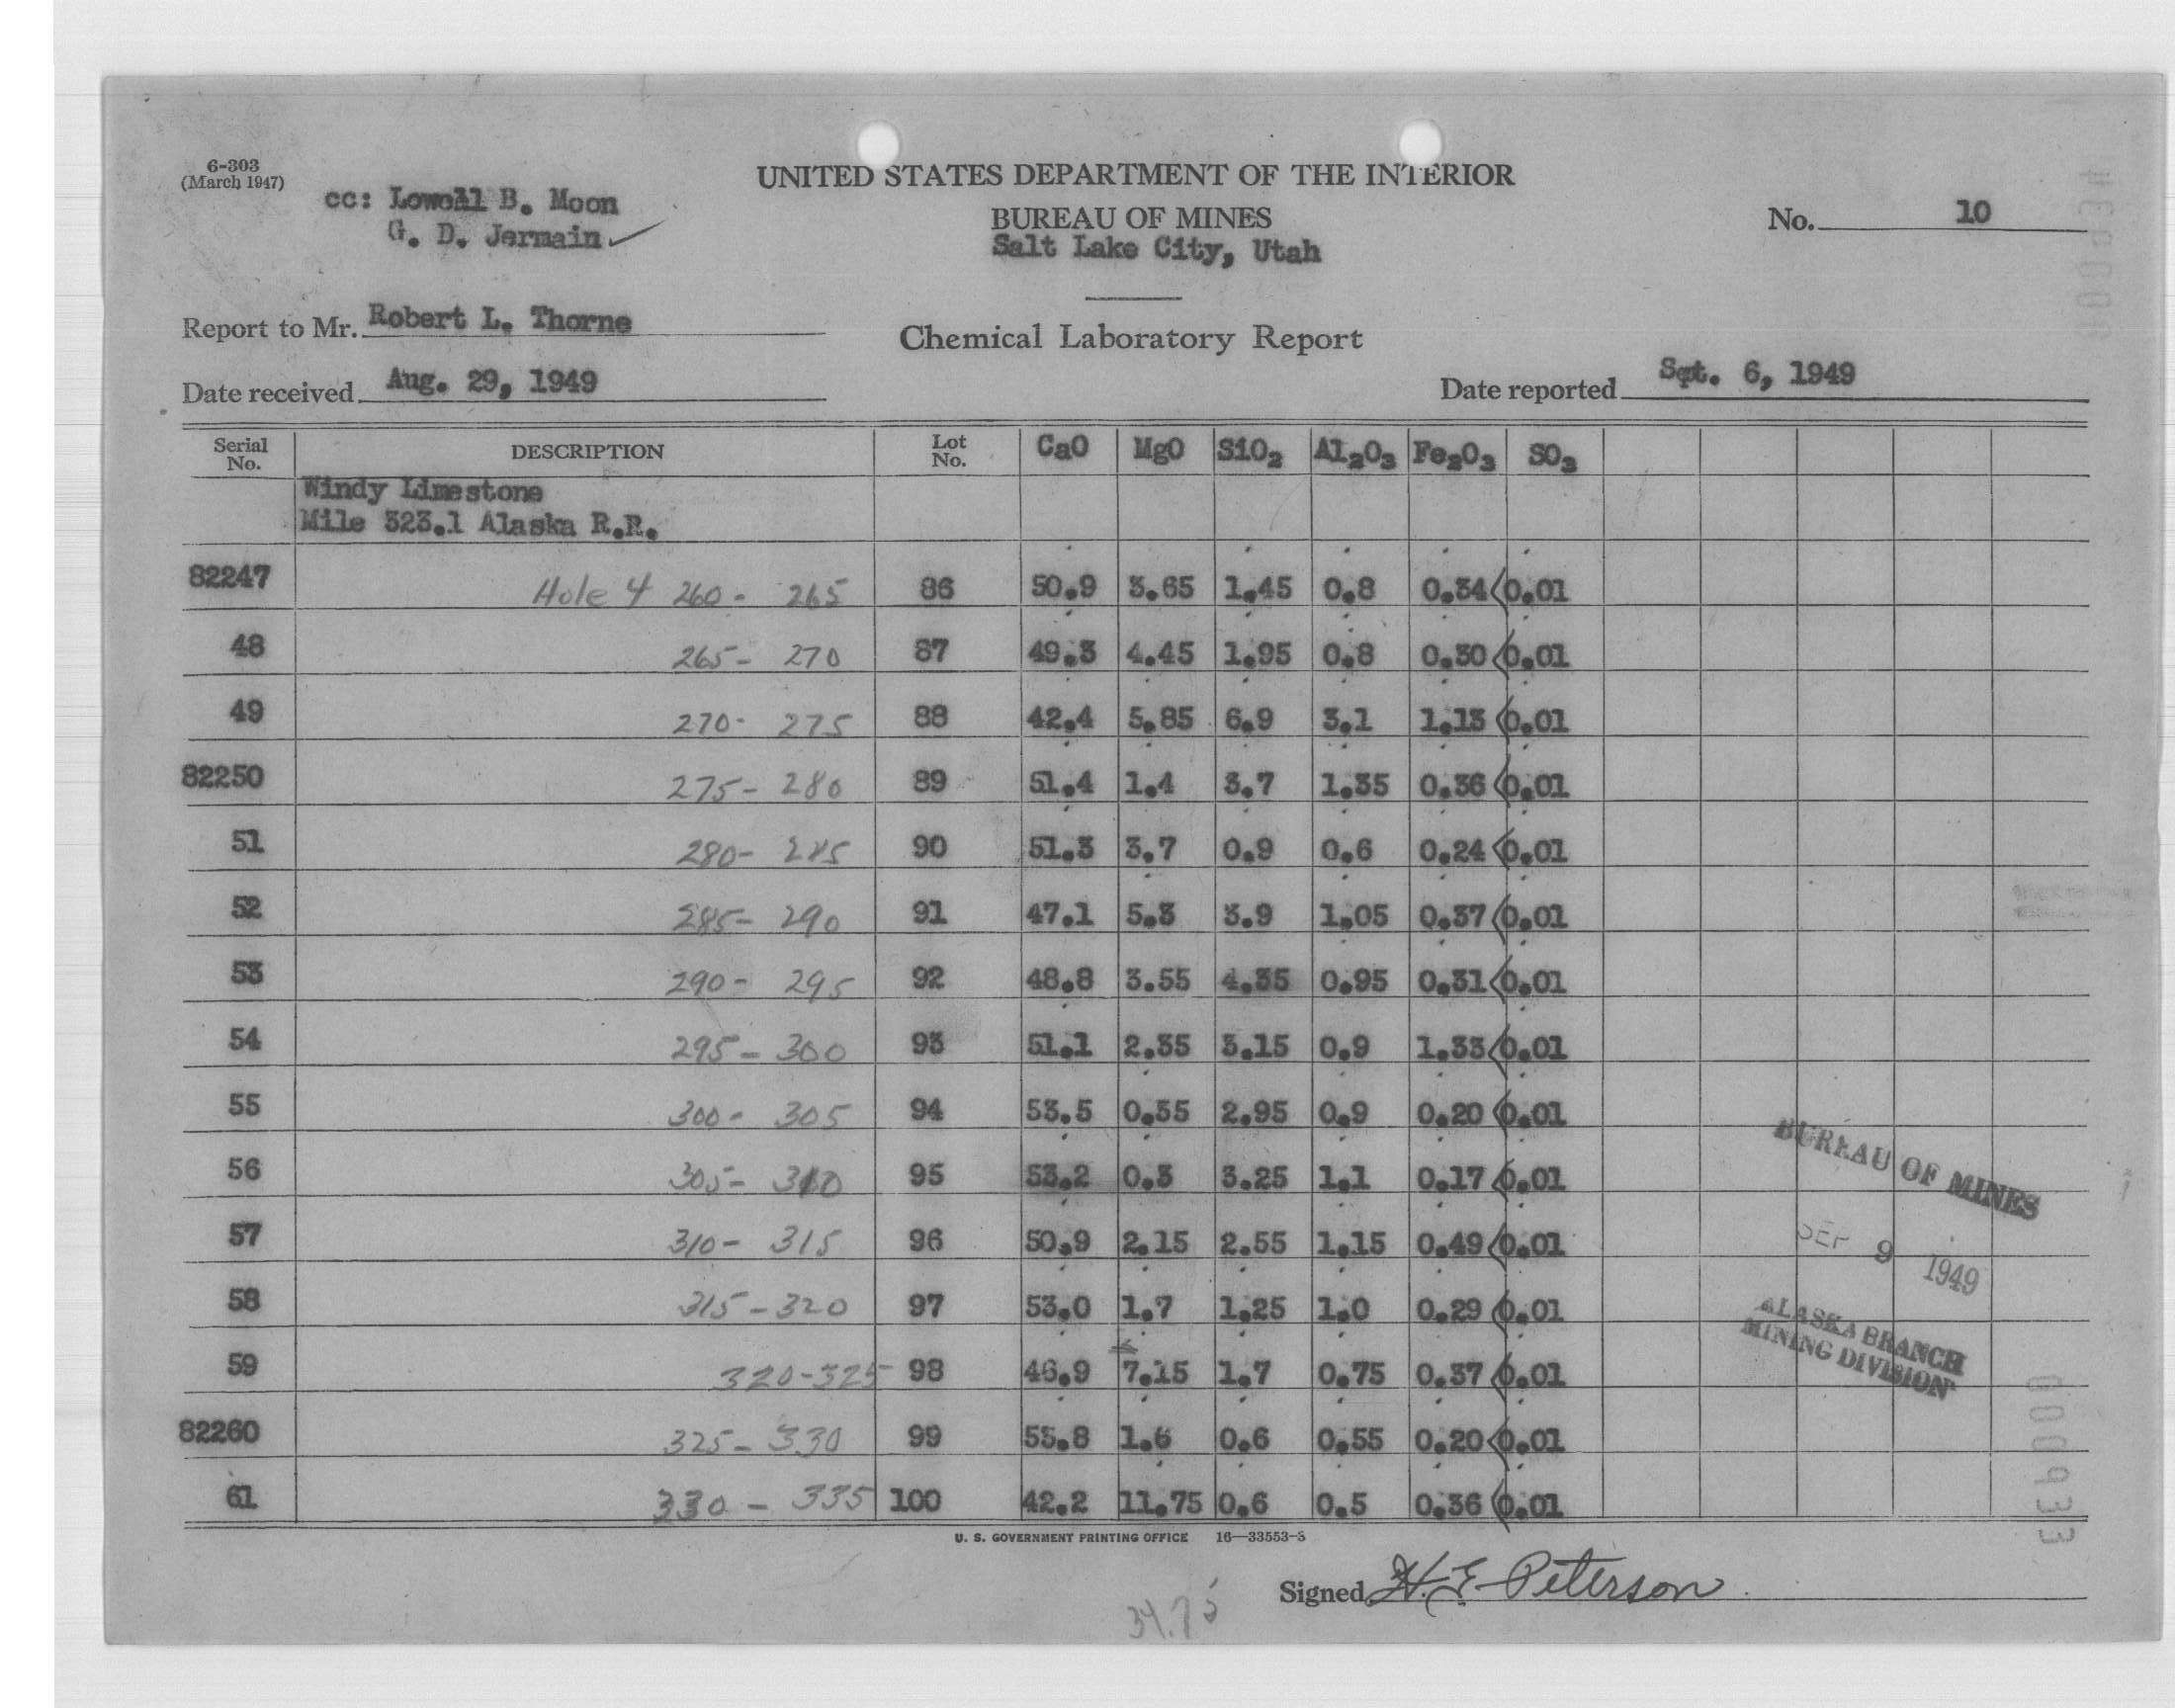 6-303
(March 1947)
cc: Lowell B. Moon
G. D. Jermain ✓
UNITED STATES DEPARTMENT OF THE INTERIOR
BUREAU OF MINES
Salt Lake City, Utah
No. 10
Report to Mr. Robert L. Thorne
Chemical Laboratory Report
Date received Aug. 29, 1949
Date reported Sept. 6, 1949
Serial No. DESCRIPTION Lot No. CaO MgO SiO2 Al2O3 Fe2O3 SO3
Windy Limestone
Mile 323.1 Alaska R.R.
82247 Hole 4 260- 265 86 50.9 3.65 1.45 0.8 0.34 <0.01
48 265- 270 87 49.3 4.45 1.95 0.8 0.30 <0.01
49 270- 275 88 42.4 5.85 6.9 3.1 1.13 <0.01
82250 275- 280 89 51.4 1.4 3.7 1.35 0.36 <0.01
51 280- 285 90 51.3 3.7 0.9 0.6 0.24 <0.01
52 285- 290 91 47.1 5.3 3.9 1.05 0.37 <0.01
53 290- 295 92 48.8 3.55 4.35 0.95 0.31 <0.01
54 295- 300 93 51.1 2.35 3.15 0.9 1.33 <0.01
55 300- 305 94 53.5 0.35 2.95 0.9 0.20 <0.01
56 305- 310 95 53.2 0.3 3.25 1.1 0.17 <0.01
57 310- 315 96 50.9 2.15 2.55 1.15 0.49 <0.01
58 315-320 97 53.0 1.7 1.25 1.0 0.29 <0.01
59 320-325 98 46.9 7.15 1.7 0.75 0.37 <0.01
82260 325- 330 99 53.8 1.6 0.6 0.55 0.20 <0.01
61 330- 335 100 42.2 11.75 0.6 0.5 0.36 <0.01
BUREAU OF MINES
SEP 9 1949
ALASKA BRANCH
MINING DIVISION
000933
U. S. GOVERNMENT PRINTING OFFICE 16—33553-3
Signed H. E. Peterson